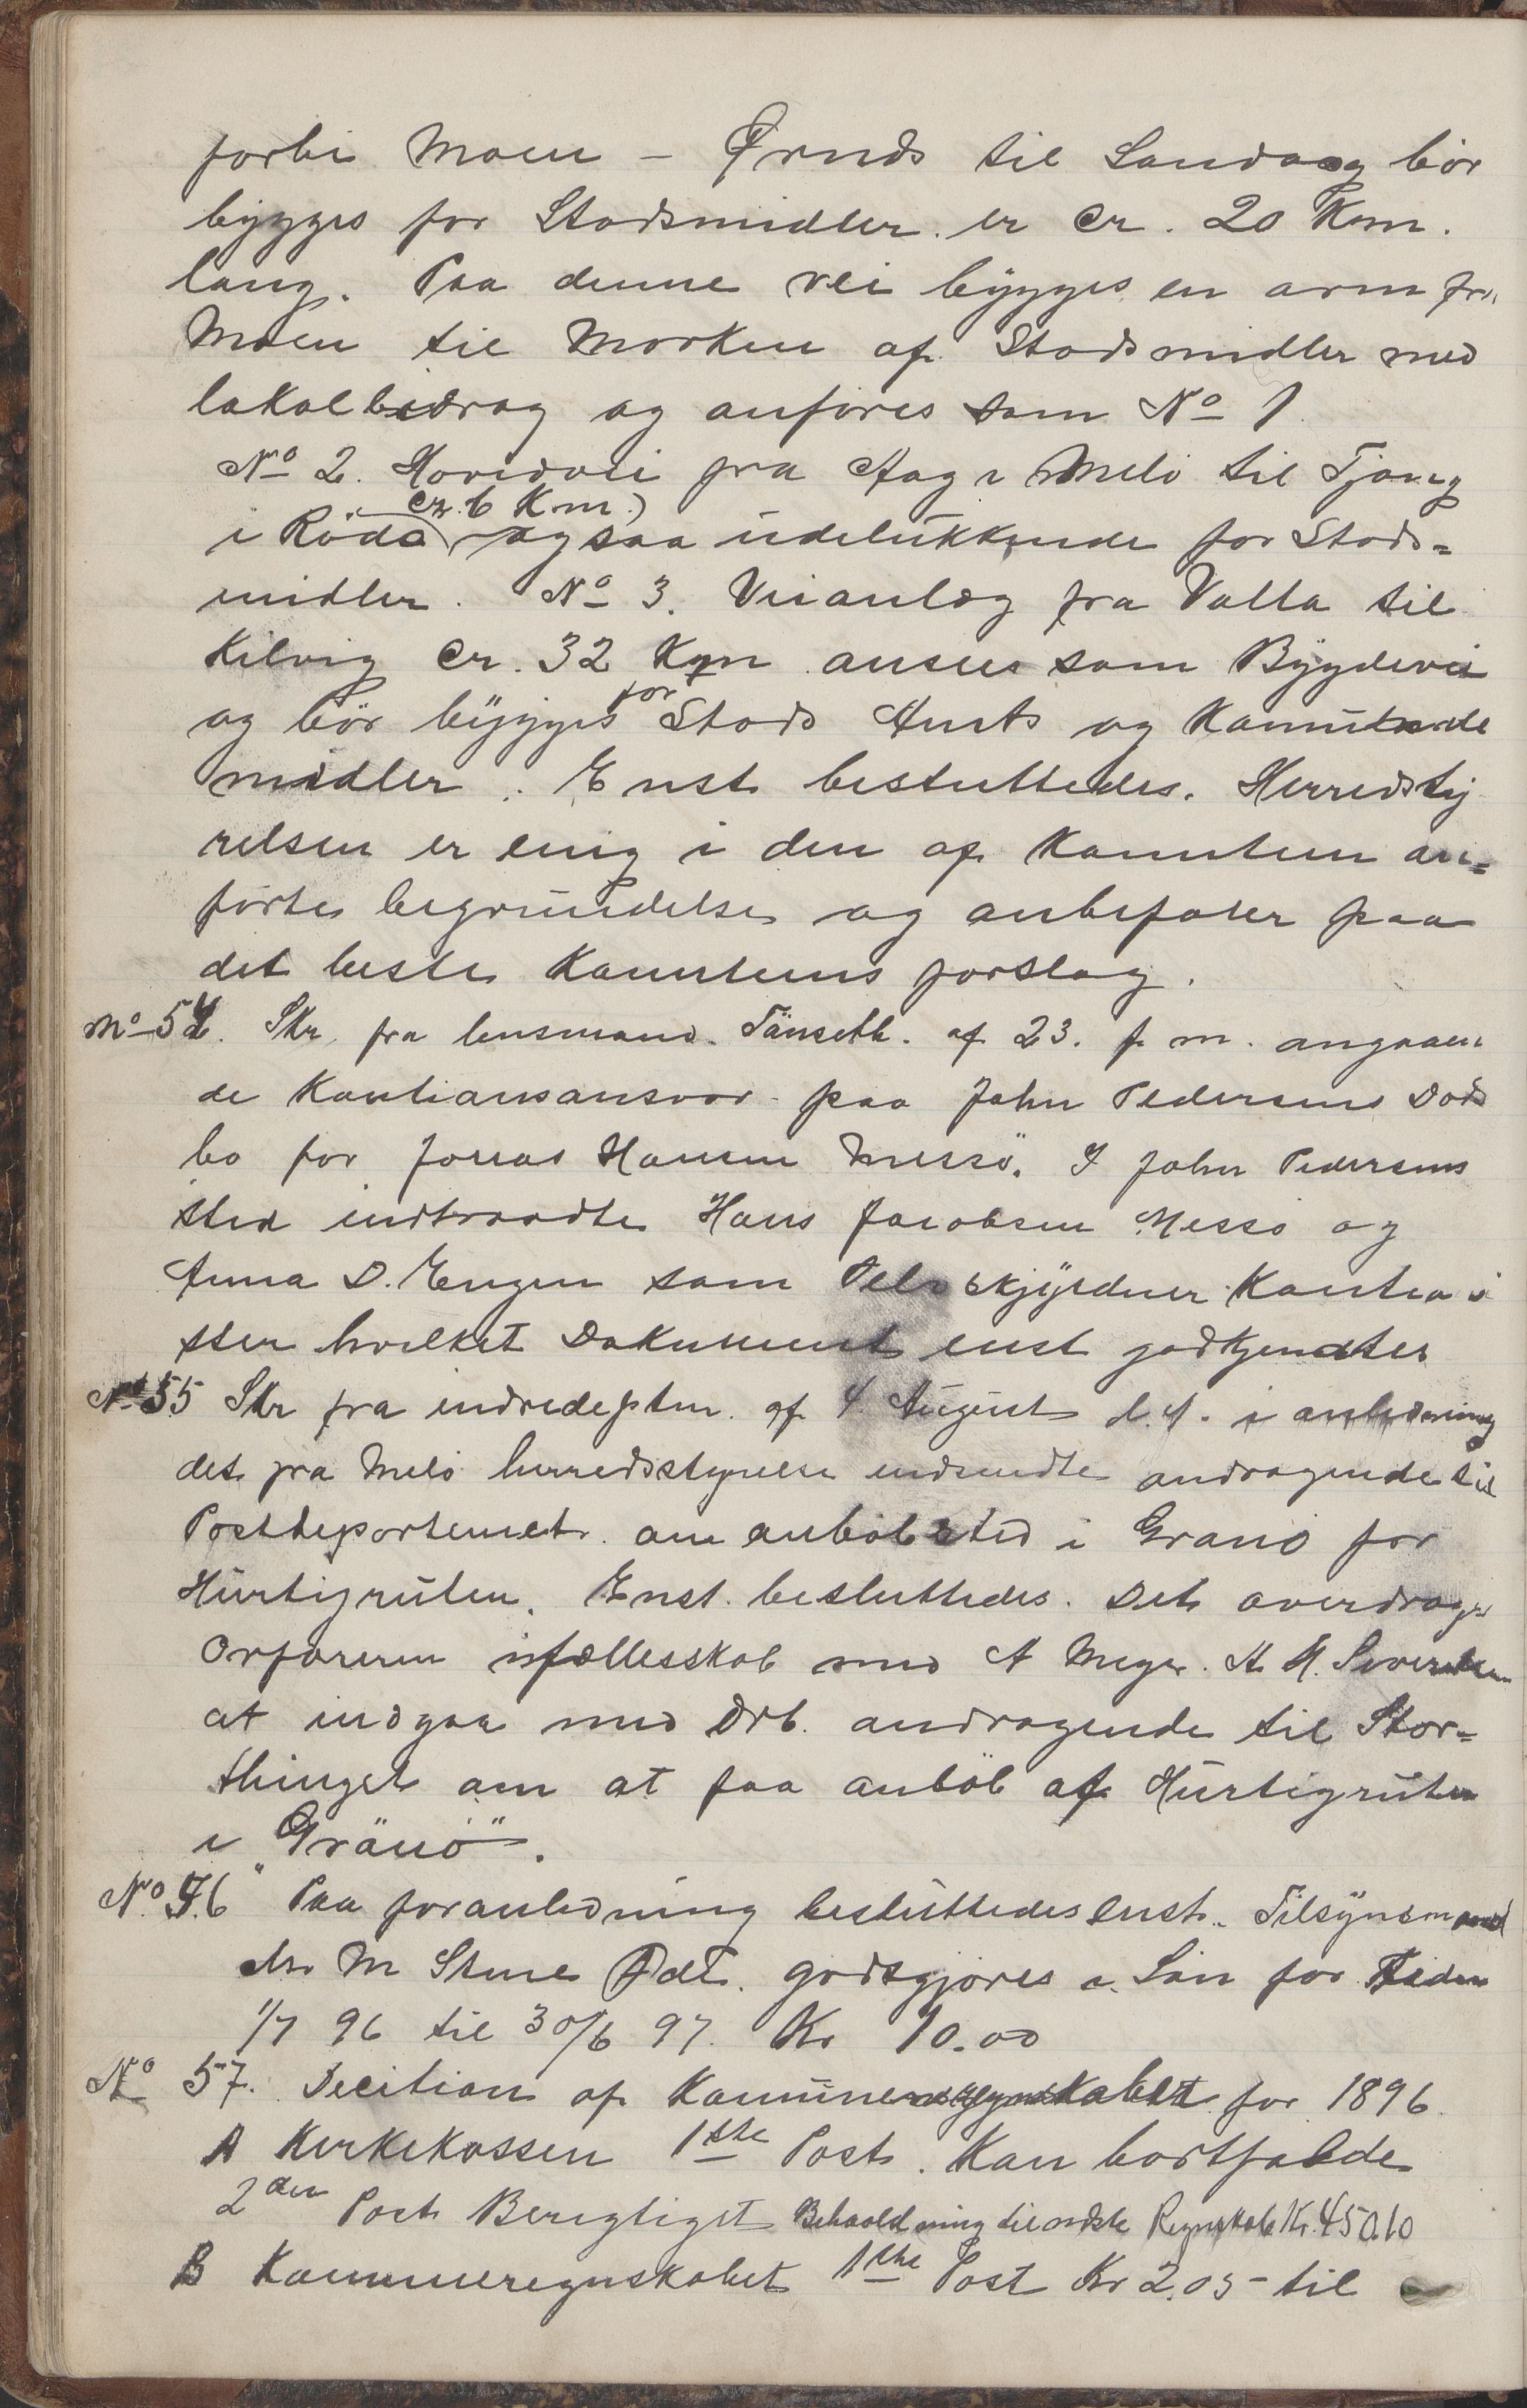 forbi Moen - Ørnds til Sandaag bör
bygges for Stadsmidler. er cr. 20 Km.
lang. Paa denne vei bygges en arm fra
Moen til Morken af Stadsmidler med
lakalbidrag og anföres som No 1
No 2. Hovedvei fra Aag i Melö til Tjong
cr. 6 Km.)
i Rödö ogsaa udelukkende for Stads=
midler. No 3. Veianlæg fra Valla til
Kilvig cr. 32 Km ansees som Bygdevei
og bör bygges for Stads Amts og Kamunde
midler. Enst besluttedes. Herredsty
relsen er enig i den af Kamiteen an=
förte begrundelse og anbefaler paa
det beste Kamiteens forslag.
No 54. Skr. fra lensmand. Tånseth. af 23. f. m. angaaen
de Kautiansansvar paa John Pedersens Döds
bo for Jonas Hansen Messö. I John Pedersens
sted indtraadte Hans Jacobsen Messö og
Anna D. Engen som Selvskyldner Kautiani
ster hvilket Dokument enst godkjendtes
No 55 Skr fra indredeptm. af 4. August d. A. i anledning
det fra Melö herredsstyrelse indsendte andragende til
Postdepartemet. om anlöbssted i Granö for
Hurtigruten. Enst. besluttedes. Det overdrages
Orföreren i fællesskab med A Meyer. A. M. Sivertsen
at indgaa med Drb. andragende til Stor=
thinget om at faa anlöb af Hurtigruten
i "Grånö".
No 56 Paa foranledning besluttedes enst. Tilsynsmand
M Stene godtgjöres i Lön for Tiden
1/7 96 til 30/6 97. Kr 10.00
No 57. Decition af Kamuneregnskabet for 1896
A Kirkekassen 1ste Post. Kan bortfalde
2den Post Berigtiget Behaoldning til næste Regnskab Kr. 450.10
B Kammuneregnskabet 1ste Post Kr 2.05 - til